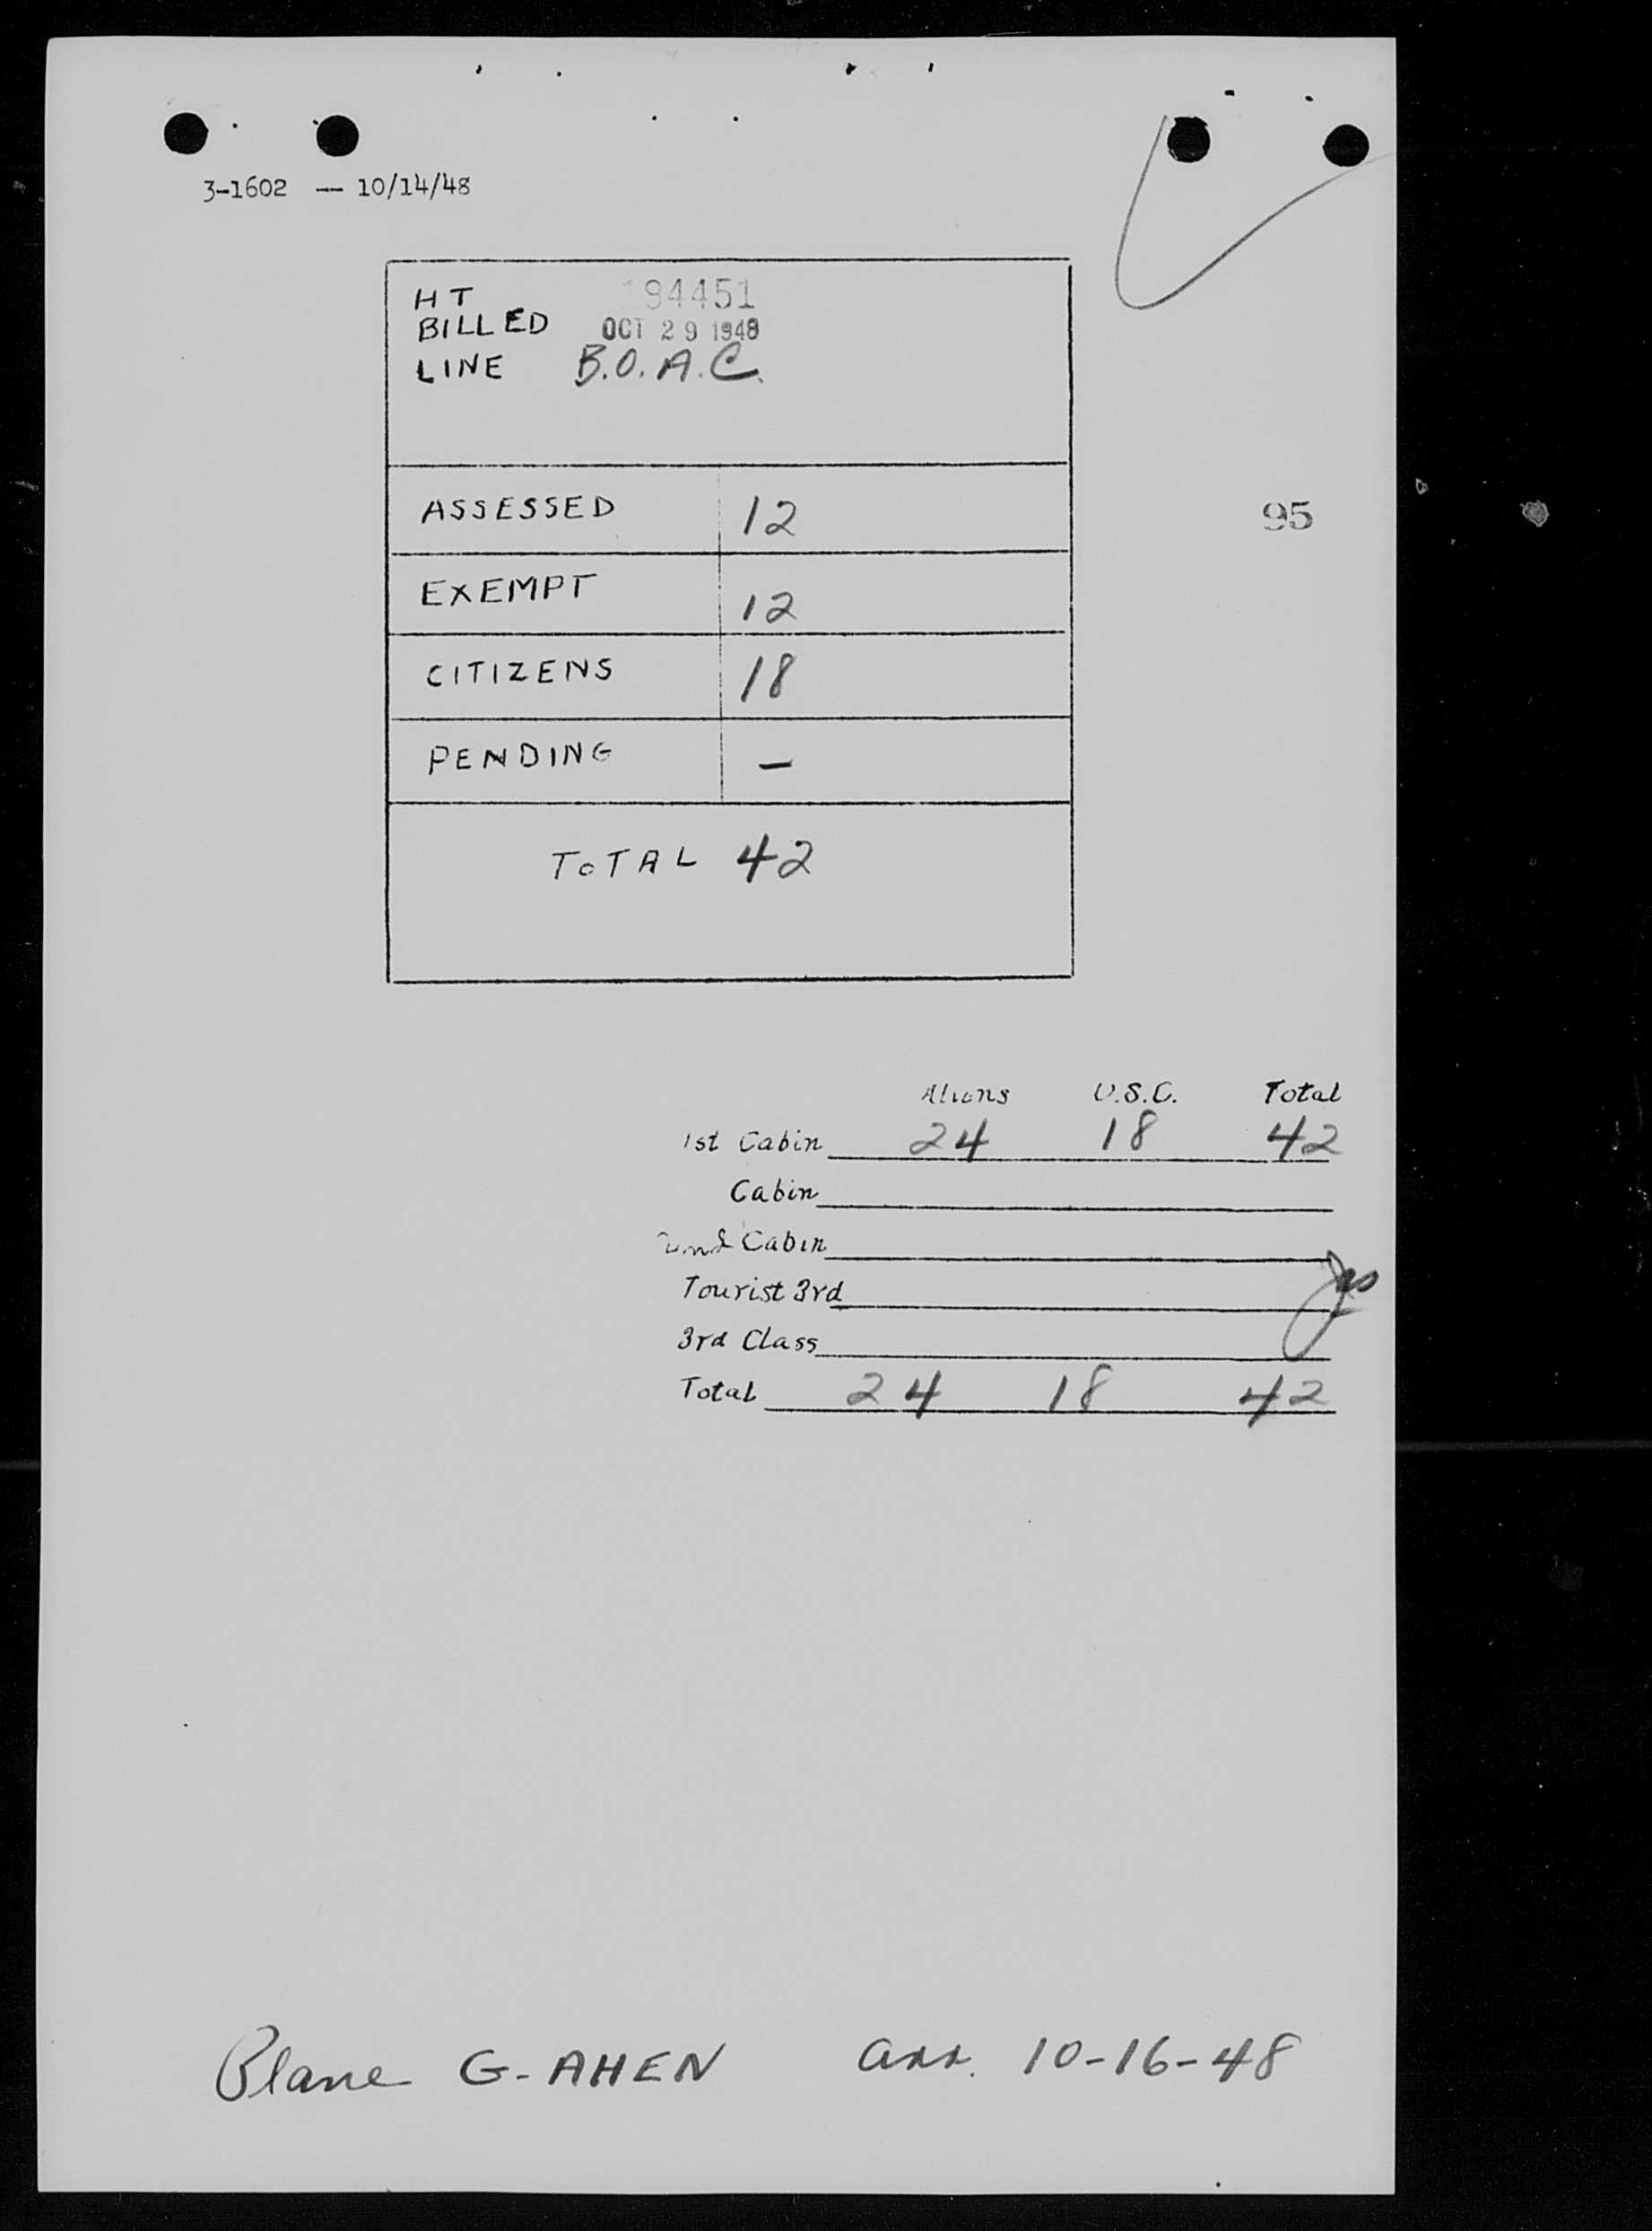 3-1602 — 10/14/48
HT 194451
BILLED OCT 29 1948
LINE B.O.A.C.
ASSESSED 12
95
EXEMPT 12
CITIZENS 18
PENDING —
TOTAL 42
Aliens U.S.C. Total
1st Cabin 24 18 42
Cabin
2nd Cabin
Tourist 3rd
3rd Class
Total 24 18 42
Plane G-AHEN arr. 10-16-48